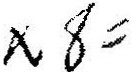 x 8 =